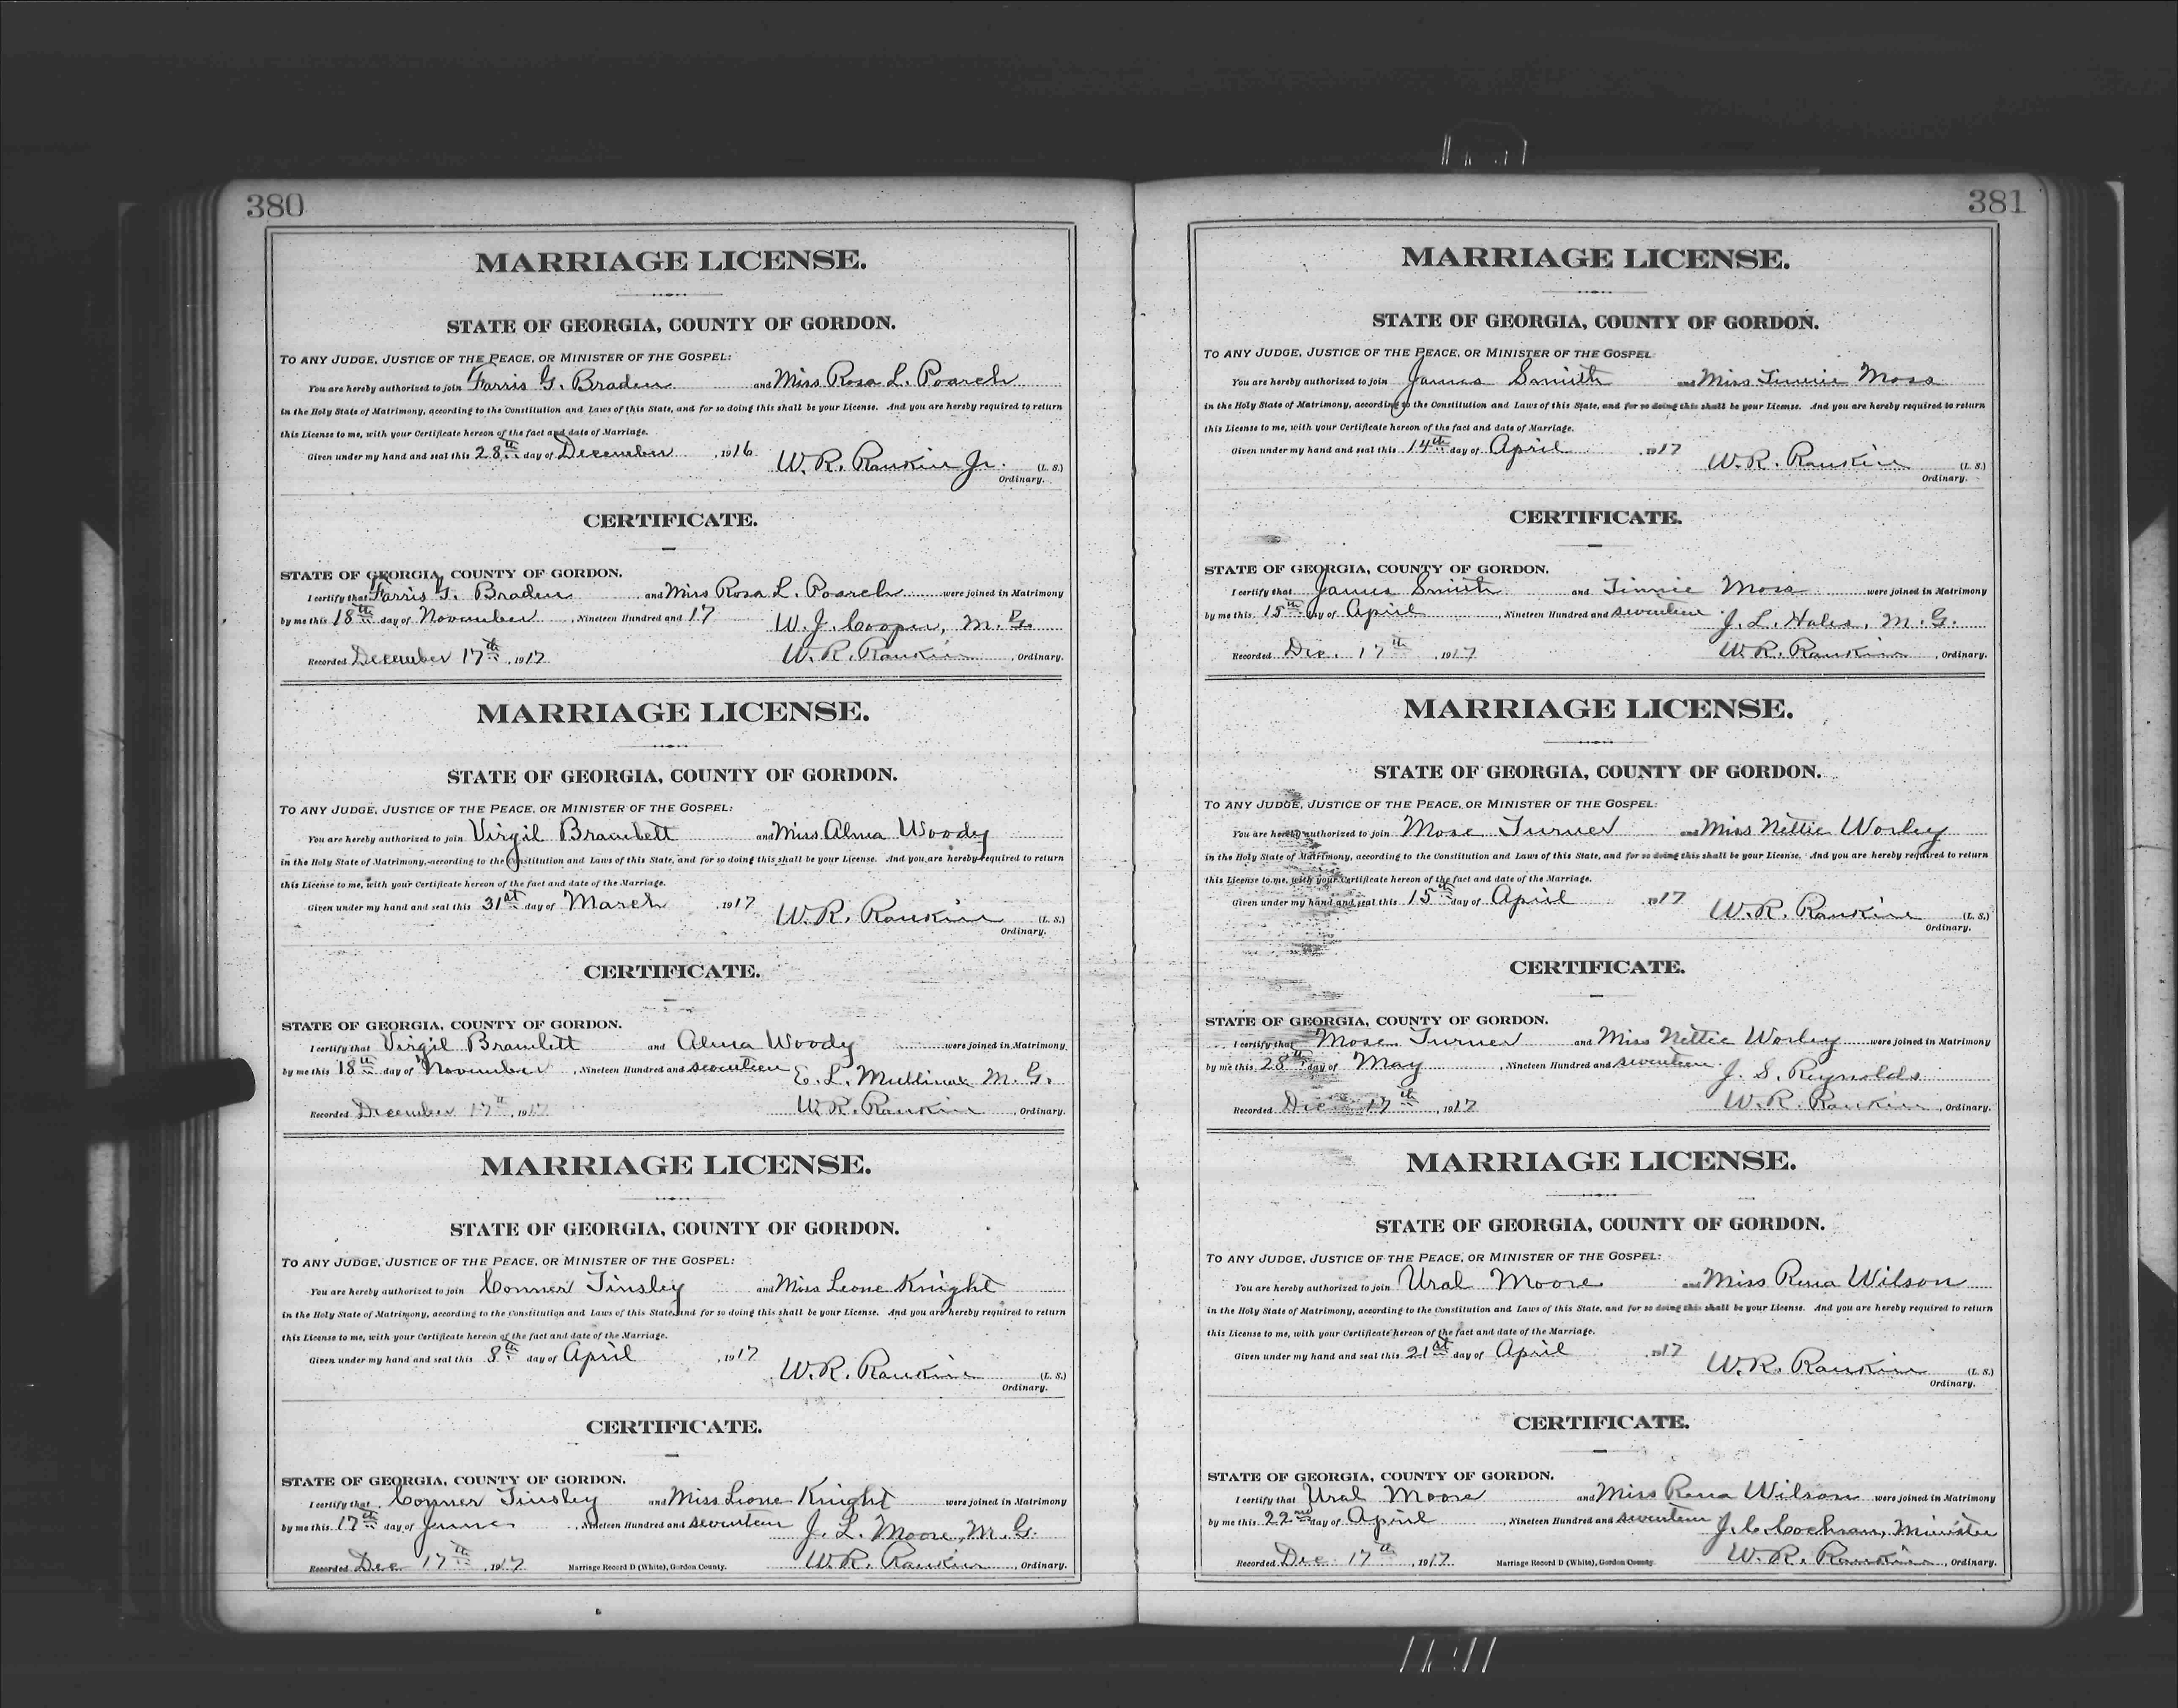 380
MARRIAGE LICENSE.
STATE OF GEORGIA, COUNTY OF GORDON.
TO ANY JUDGE, JUSTICE OF THE PEACE, OR MINISTER OF THE GOSPEL:
You are hereby authorized to join Farris G. Braden and Miss Rosa L. Poarch
in the Holy State of Matrimony, according to the Constitution and Laws of this State, and for so doing this shall be your License. And you are hereby required to return
this License to me, with your Certificate hereon of the fact and date of Marriage.
Given under my hand and seal this 28th day of December, 1916 W. R. Rankin Jr. (L. S.)
Ordinary.
CERTIFICATE.
STATE OF GEORGIA, COUNTY OF GORDON.
I certify that Farris G. Braden and Miss Rosa L. Poarch were joined in Matrimony
by me this 18th day of November, Nineteen Hundred and 17 W. J. Cooper, M. G.
Recorded December 17th, 1917 W. R. Rankin, Ordinary.
MARRIAGE LICENSE.
STATE OF GEORGIA, COUNTY OF GORDON.
TO ANY JUDGE, JUSTICE OF THE PEACE, OR MINISTER OF THE GOSPEL:
You are hereby authorized to join Virgil Bramlett and Miss Alma Woody
in the Holy State of Matrimony, according to the Constitution and Laws of this State, and for so doing this shall be your License. And you are hereby required to return
this License to me, with your Certificate hereon of the fact and date of the Marriage.
Given under my hand and seal this 31st day of March, 1917 W. R. Rankin (L. S.)
Ordinary.
CERTIFICATE.
STATE OF GEORGIA, COUNTY OF GORDON.
I certify that Virgil Bramlett and Alma Woody were joined in Matrimony
by me this 18th day of November, Nineteen Hundred and seventeen E. L. Mullinax M. G.
Recorded December 17th, 1917 W. R. Rankin, Ordinary.
MARRIAGE LICENSE.
STATE OF GEORGIA, COUNTY OF GORDON.
TO ANY JUDGE, JUSTICE OF THE PEACE, OR MINISTER OF THE GOSPEL:
You are hereby authorized to join Conner Tinsley and Miss Leone Knight
in the Holy State of Matrimony, according to the Constitution and Laws of this State, and for so doing this shall be your License. And you are hereby required to return
this License to me, with your Certificate hereon of the fact and date of the Marriage.
Given under my hand and seal this 8th day of April, 1917 W. R. Rankin (L. S.)
Ordinary.
CERTIFICATE.
STATE OF GEORGIA, COUNTY OF GORDON.
I certify that Conner Tinsley and Miss Leone Knight were joined in Matrimony
by me this 17th day of, Nineteen Hundred and seventeen J. L. Moore, M. G.
Recorded Dec 17th, 1917 Marriage Record D (White), Gordon County. W. R. Rankin, Ordinary.
381
MARRIAGE LICENSE.
STATE OF GEORGIA, COUNTY OF GORDON.
TO ANY JUDGE, JUSTICE OF THE PEACE, OR MINISTER OF THE GOSPEL
You are hereby authorized to join James Smith and Miss Tinnie Moss
in the Holy State of Matrimony, according to the Constitution and Laws of this State, and for so doing this shall be your License. And you are hereby required to return
this License to me, with your Certificate hereon of the fact and date of Marriage.
Given under my hand and seal this 14th day of April, 1917 W. R. Rankin (L. S.)
Ordinary.
CERTIFICATE.
STATE OF GEORGIA, COUNTY OF GORDON.
I certify that James Smith and Tinnie Moss were joined in Matrimony
by me this 15th day of April, Nineteen Hundred and seventeen J. L. Hales, M. G.
Recorded Dec. 17th, 1917 W. R. Rankin, Ordinary.
MARRIAGE LICENSE.
STATE OF GEORGIA, COUNTY OF GORDON.
TO ANY JUDGE, JUSTICE OF THE PEACE, OR MINISTER OF THE GOSPEL:
You are hereby authorized to join Mose Turner and Miss Nettie Worley
in the Holy State of Matrimony, according to the Constitution and Laws of this State, and for so doing this shall be your License. And you are hereby required to return
this License to me, with your Certificate hereon of the fact and date of the Marriage.
Given under my hand and seal this 15th day of April, 1917 W. R. Rankin (L. S.)
Ordinary.
CERTIFICATE.
STATE OF GEORGIA, COUNTY OF GORDON.
I certify that Mose Turner and Miss Nettie Worley were joined in Matrimony
by me this 28th day of May, Nineteen Hundred and seventeen J. S. Reynolds
Recorded Dec 17th, 1917 W. R. Rankin, Ordinary.
MARRIAGE LICENSE.
STATE OF GEORGIA, COUNTY OF GORDON.
TO ANY JUDGE, JUSTICE OF THE PEACE, OR MINISTER OF THE GOSPEL:
You are hereby authorized to join Ural Moore and Miss Rena Wilson
in the Holy State of Matrimony, according to the Constitution and Laws of this State, and for so doing this shall be your License. And you are hereby required to return
this License to me, with your Certificate hereon of the fact and date of the Marriage.
Given under my hand and seal this 21st day of April, 1917 W. R. Rankin (L. S.)
Ordinary.
CERTIFICATE.
STATE OF GEORGIA, COUNTY OF GORDON.
I certify that Ural Moore and Miss Rena Wilson were joined in Matrimony
by me this 22nd day of April, Nineteen Hundred and seventeen J. C. Cochran, Minister
Recorded Dec 17th, 1917 Marriage Record D (White), Gordon County. W. R. Rankin, Ordinary.